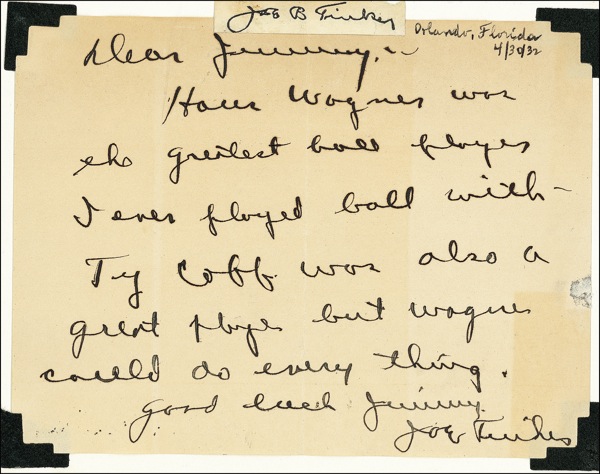 Joe B Tinker
Orlando, Florida
4/30/32
Dear Jimmy,
Hans Wagner was
the greatest ball player
I ever played ball with -
Ty Cobb was also a
great player but Wagner
could do every thing.
Good luck Jimmy.
Joe Tinker